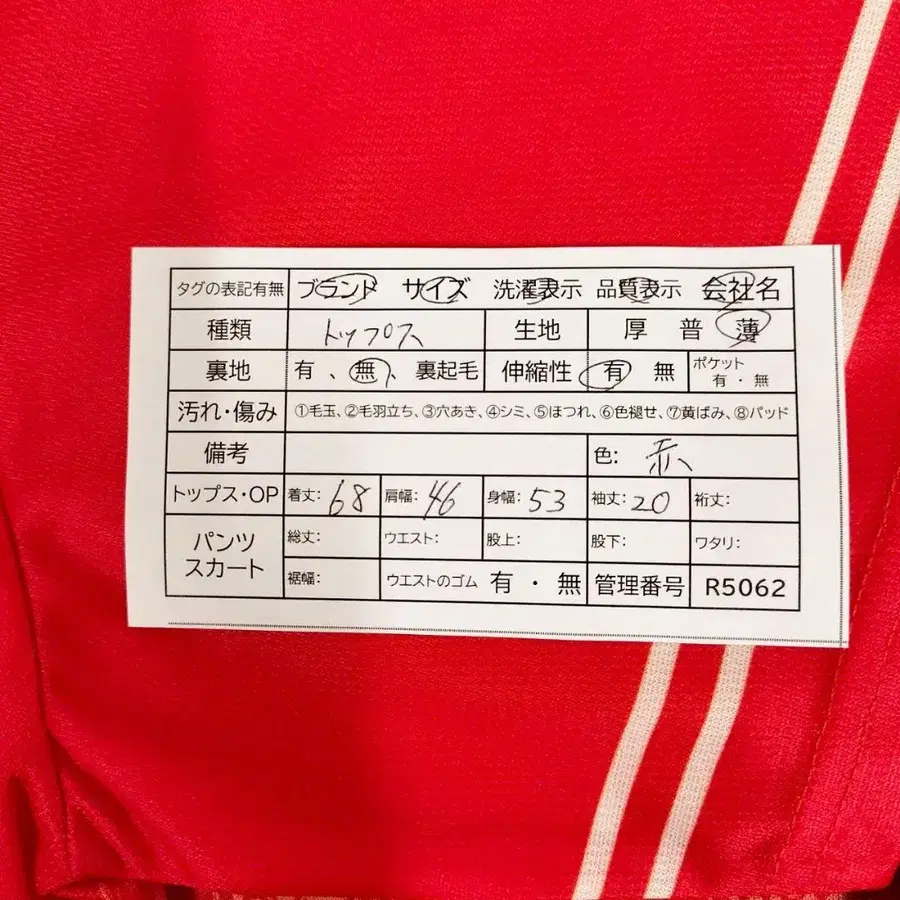 タグの表記有無 ブランド サイズ 洗濯表示 品質表示 会社名
種類 トップス 生地 厚 普 薄
裏地 有 、無、裏起毛 伸縮性 有 無 ポケット 有・無
汚れ・傷み ①毛玉、②毛羽立ち、③穴あき、④シミ、⑤ほつれ、⑥色褪せ、⑦黄ばみ、⑧パッド
備考 色: 赤
トップス・OP 着丈: 68 肩幅: 46 身幅: 53 袖丈: 20 裄丈:
パンツ スカート 総丈: ウエスト: 股上: 股下: ワタリ:
裾幅: ウエストのゴム 有 ・ 無 管理番号 R5062